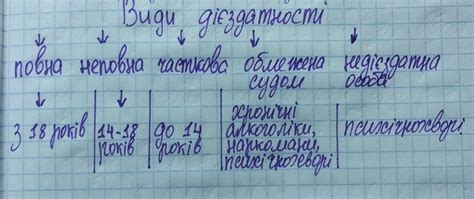 Види дієздатності
повна неповна часткова обмежена недієздатна
судом особа
з 18 років 14-18 років до 14 років хронічні алкоголіки, наркомани, психічнохворі психічнохворі